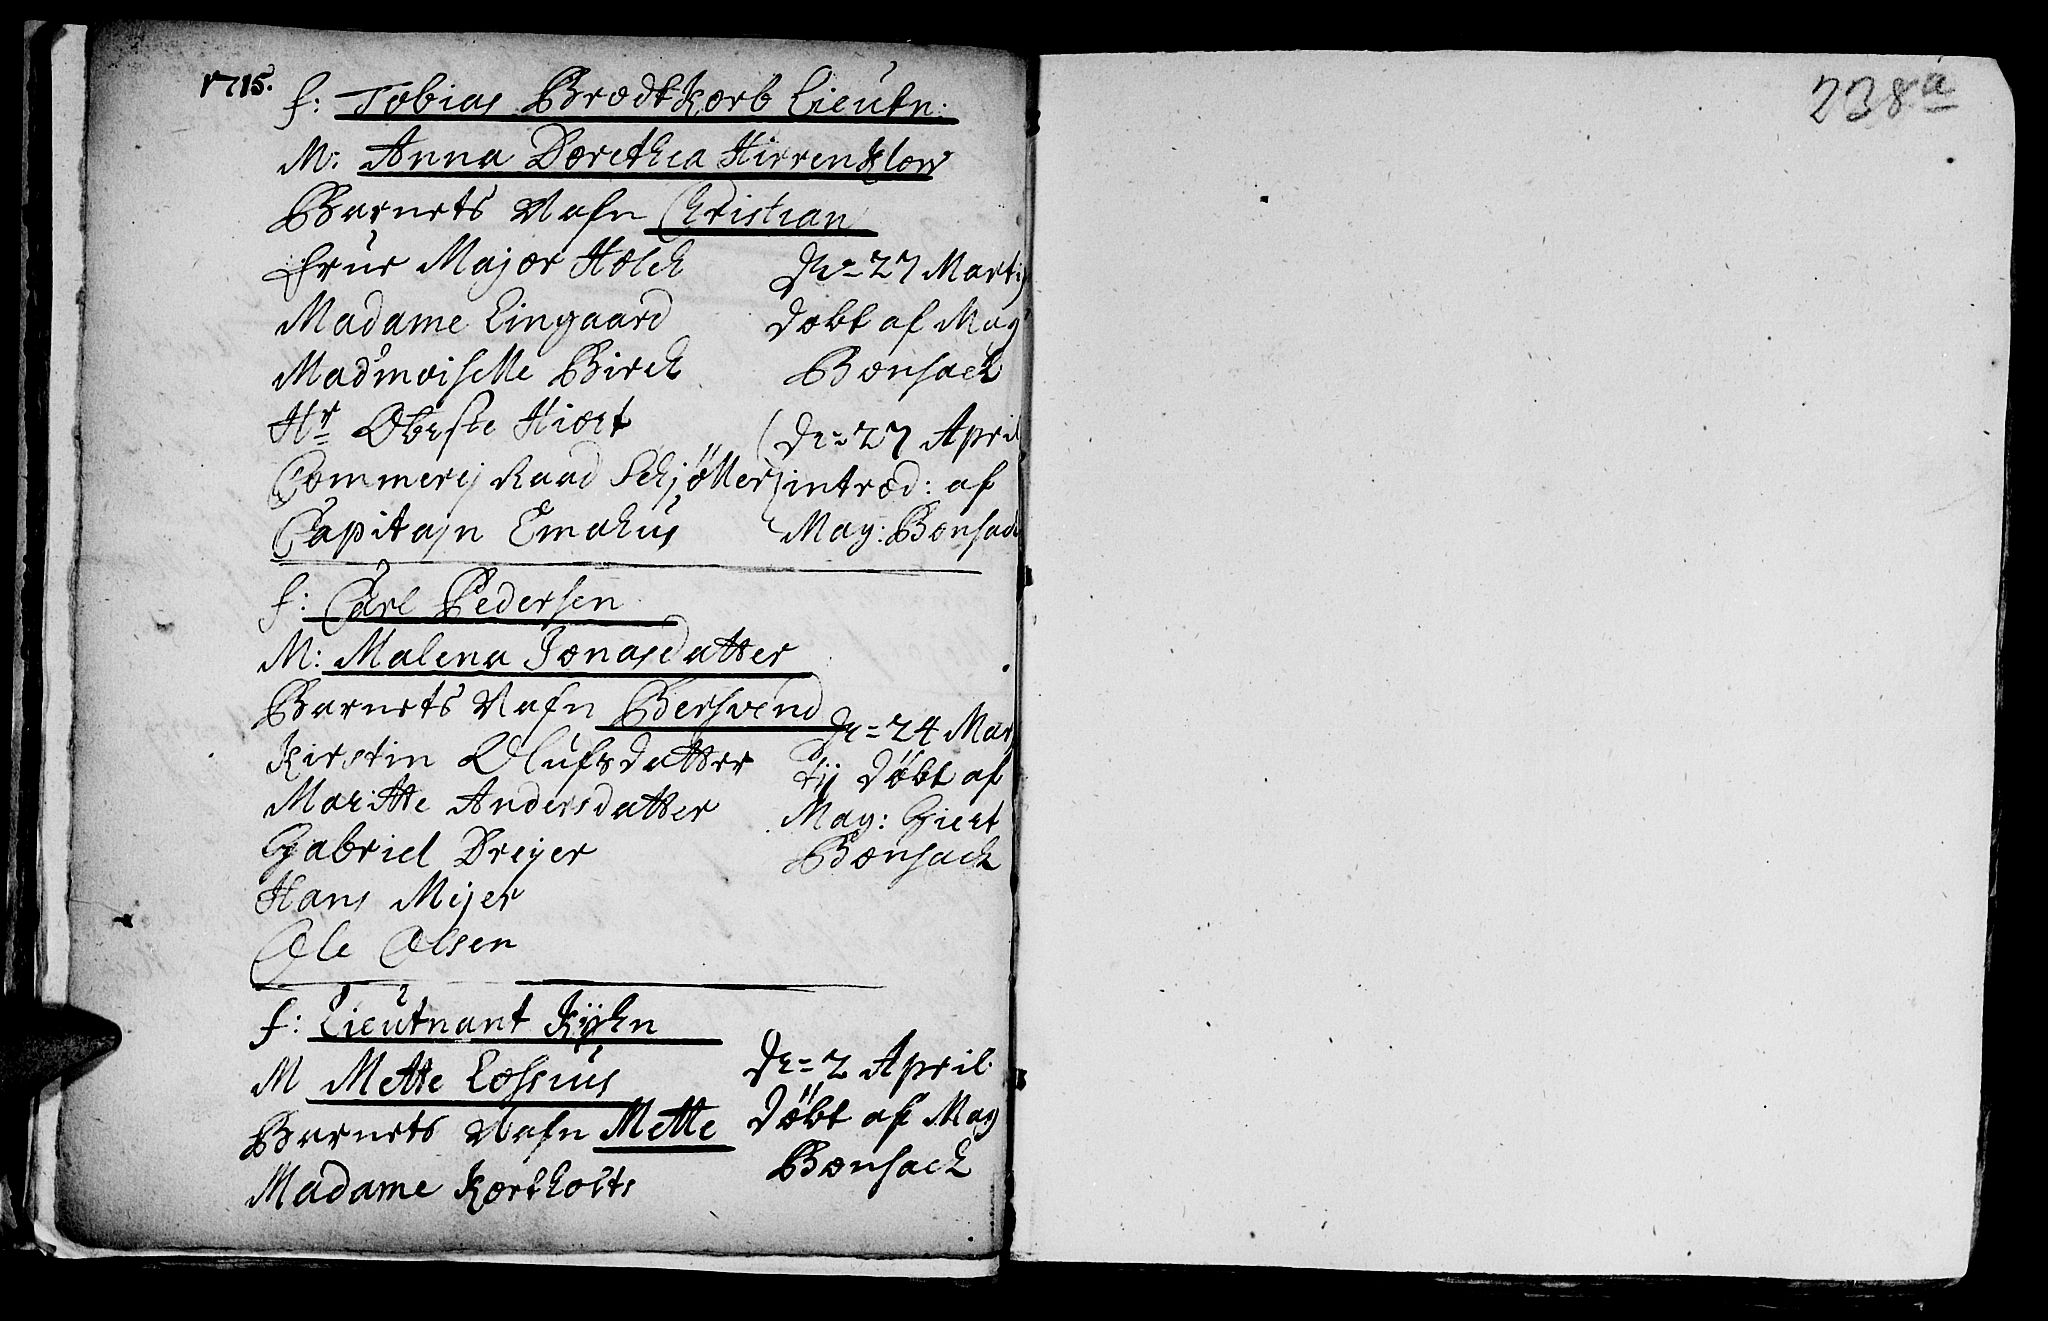 1715.
f: Tobias Brodtkorb Lieutn:
M: Anna Dorethea Hirrenklow
Barnets Nafn Christian
Frue Major Holck
Madame Lingaard
Madmoiselle Birck
Hr Oberste Hiort
Commerij Raad Schjöller
Capitajn Emahus
D: 27 Martij
Döbt af Mag
Bonsack
D: 27 April
introd: af
Mag: Bonsack
f: Carl Pedersen
M: Malena Jonasdatter
Barnets Nafn Bersvend
Kirstin Olufsdatter
Maritte Andersdatter
Gabriel Dreyer
Hans Mejer
Ole Olsen
D: 24 Mar
tij Döbt af
Mag: Giert
Bonsack
f: Lieutnant Kÿhn
M Mette Lossius
Barnets Nafn Mette
Madame Kortholts
D: 2 April
Döbt af Mag
Bonsack
238a